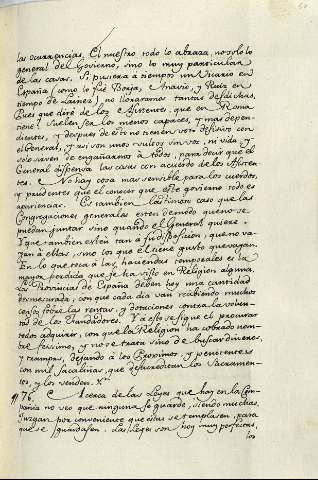 las ocurrencias. El nuestro todo lo abraza, no solo lo
general del Govierno, sino lo muy particular
de las casas. Si pusiera à tiempos un Vicario en
España (como lo fuè Borja, Araoz, y Ruiz en
tiempo de Lainez) no lloraramos tantas desdichas.
Pues que dirè de los Asistentes, que en Roma
tiene? Suelen ser los menos capaces, y mas depen-
dientes, y despues de esto no tienen voto decisivo con
el General, y asi son unos vultos sin voz, ni vida, y
solo sirven de engañarnos à todos, para decir que el
General dispensa las cosas con acuerdo de los Asisten-
tes. No hay cosa mas sensible para los cuerdos,
y prudentes que el conocer que este govierno todo es
apariencias. Es tambien lastimoso caso que las
Congregaciones generales esten de modo que no se
puedan juntar sino quando el General quiere.
Y que tambien esten tan à su disposicion, que no va-
yan à ellas, sino los que el tiene gusto que vayan.
En lo que toca à las haciendas temporales es la
mayor perdida que se ha visto en Religion alguna.
Las Provincias de España deben hoy una cantidad
desmesurada, con que cada dia van recibiendo muchos
censos sobre las rentas, y dotaciones contra la volun-
tad de los Fundadores. Y a esto se sigue el procurar
todos adquirir, con que la Religion ha cobrado nom-
bre feissimo, y no se trata sino de buscar dineros,
y trampas, dejando à los Proximos, y penitentes
con mil sacaliñas, que desacreditan los Sacramen-
tos, y los venden.
¶ 76. Acerca de las Leyes que hay en la Com-
pañia no veo que ninguna se guarde, siendo muchas.
Juzgan por conveniente que estas se templasen, para
que se guardasen. Las Leyes son hoy muy perfectas,
los